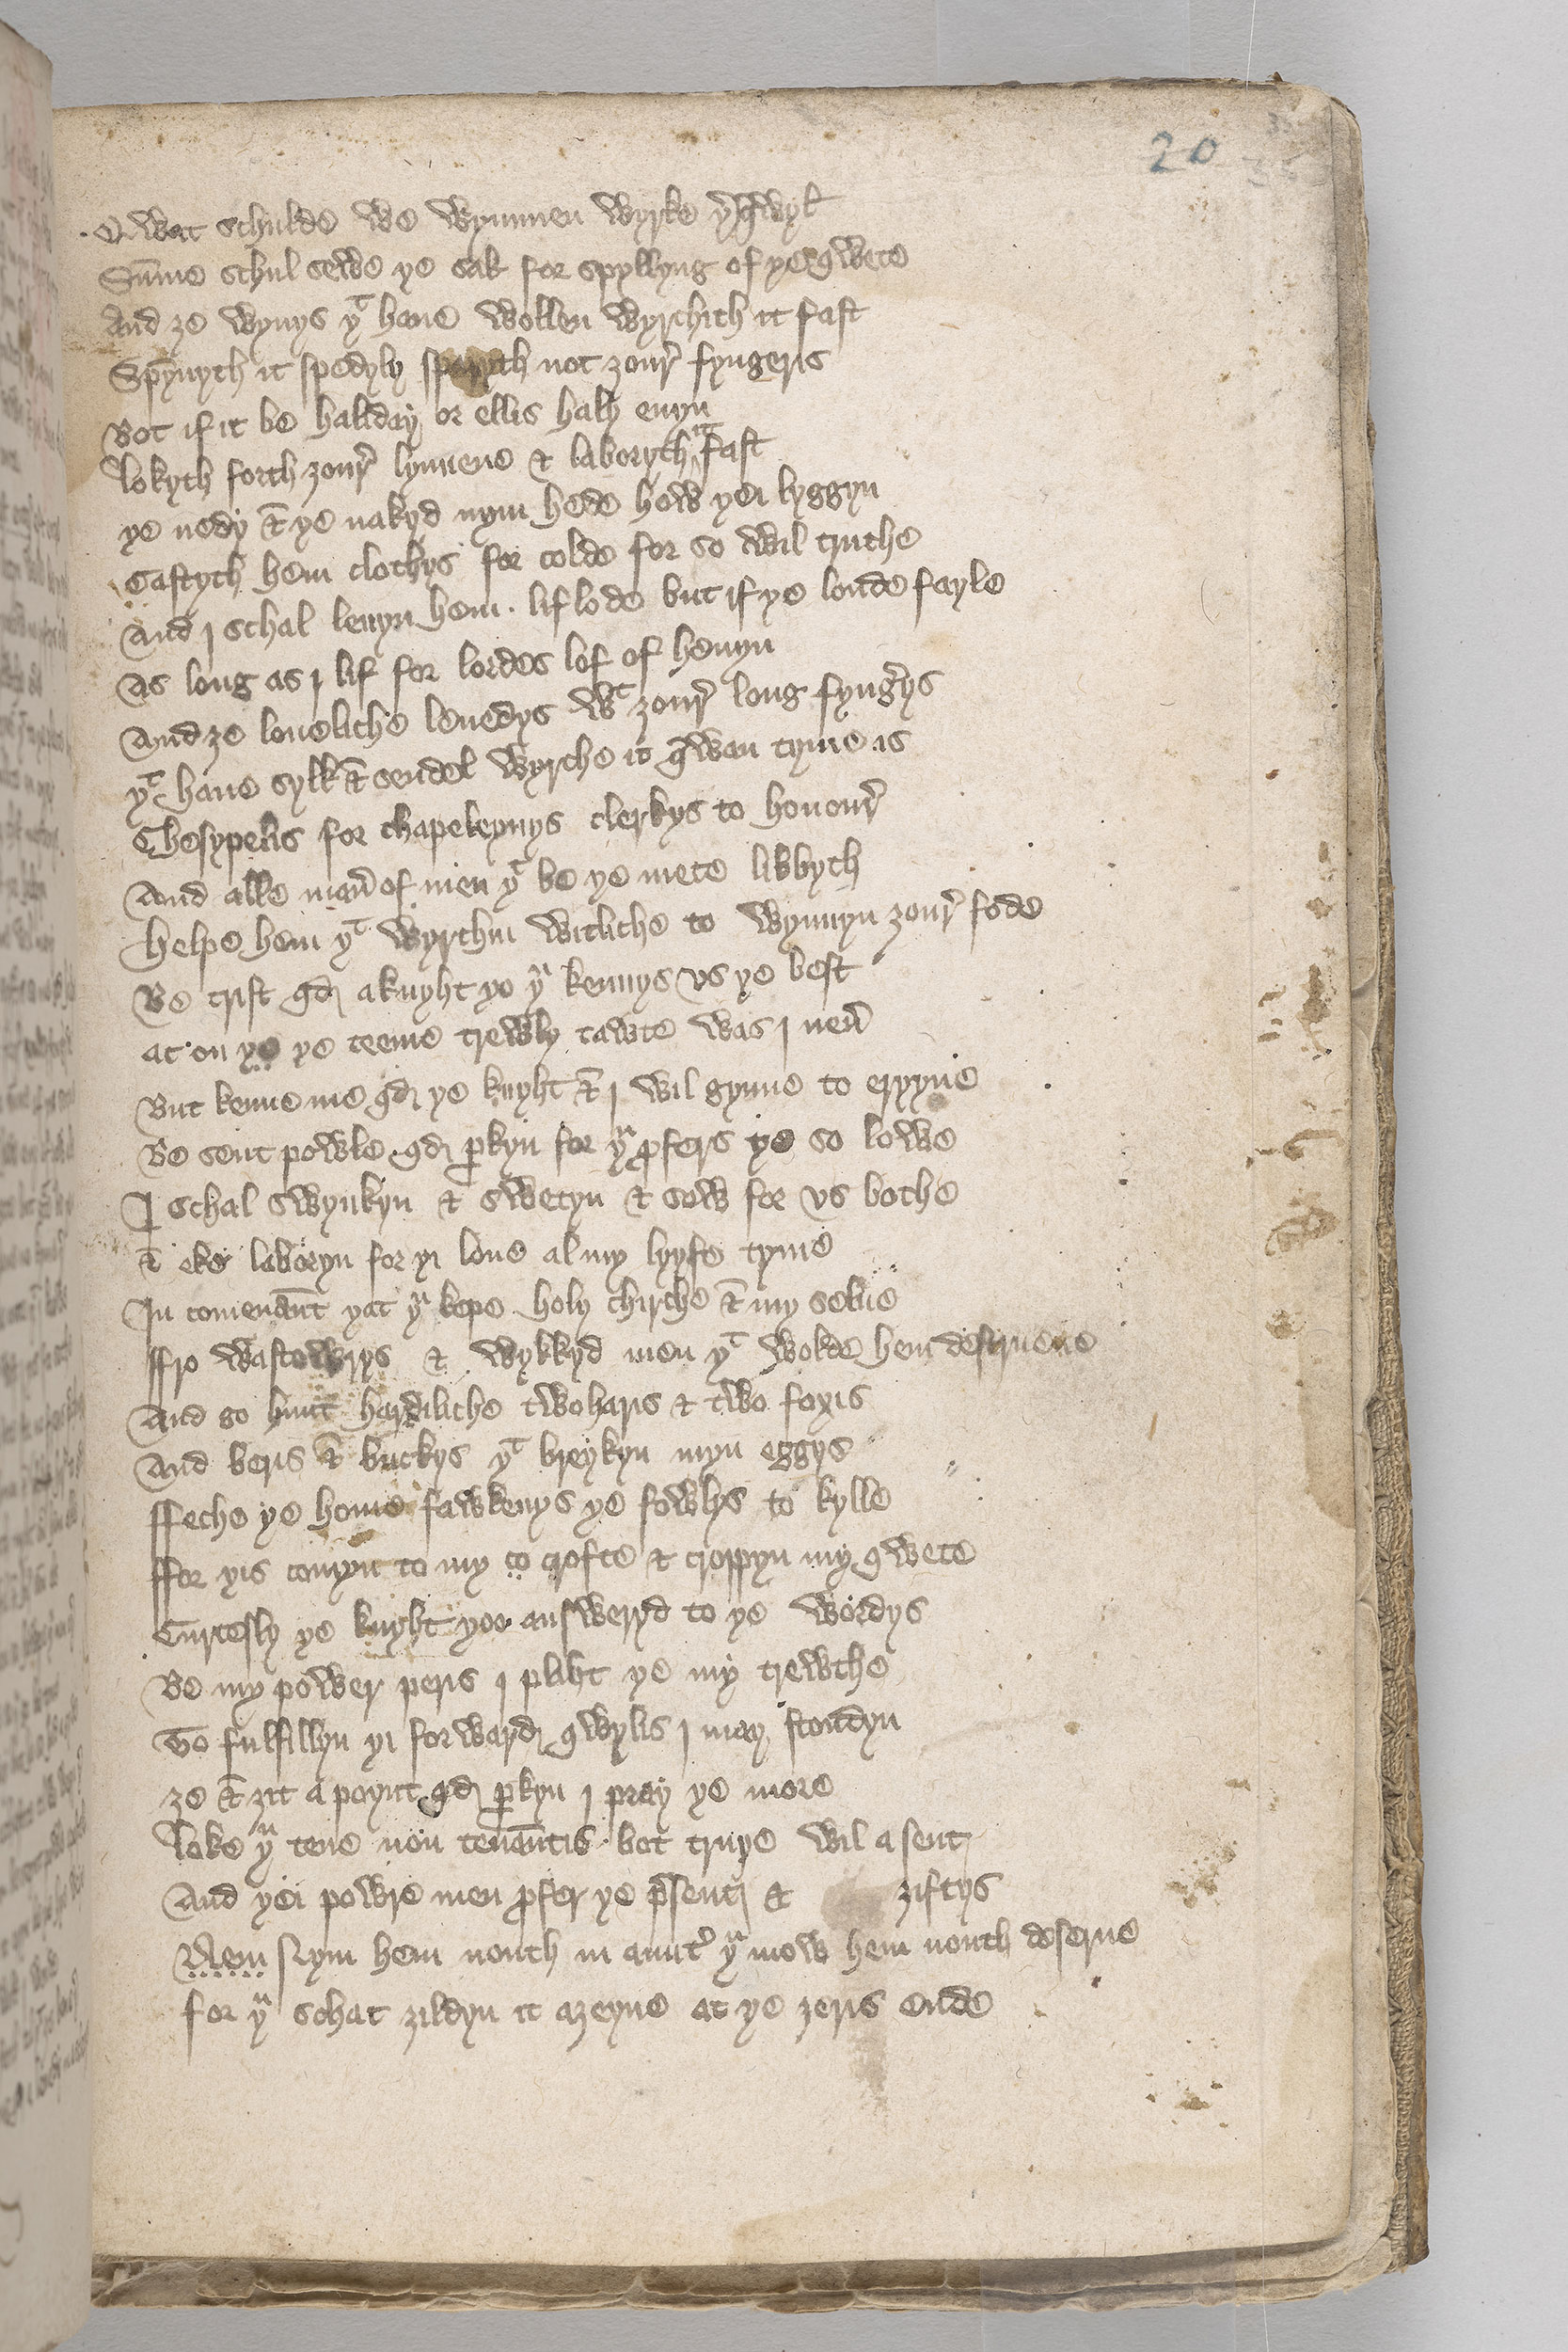 20
Qwat schulde we wymmen wyrke yͤ qwyl
Sūme schul sewe ye sak for spyllyng of ye qwete
And ze wyuys yᵗ haue wollen wyrchith it fast
Spynyth it spedyly sparyth not zour fyngeris
Bot if it be haliday or ellis haly euyn
lokyth forth zour lynnene & laboryth it fast
ye nedy & ye nakyd nym hede how yei lyggyn
Castyth hem clothys for colde for so wil truthe
And j schal lenyn hem liflode but if ye londe fayle
As long as j lif for lordes lof of heuyn
And ze loueliche leuedys wᵗ zour long fyngrys
yᵗ haue sylk & sendel wyrche it qwan tyme is
Chesypelis for chapeleynys clerkys to honour
And alle maner of men yᵗ be ye mete libbyth
Helpe hem yᵗ wyrchin witliche to wynnyn zour fode
Be crist qd a knyht yo yᵘ kennys vs ye best
at on ye ye teeme trewly tawte was j neuer
But kenne me qd ye knyht & j wil gynne to eryyne
Be sent powle qd pkyn for yᵘ pfers ye so lowe
I schal swynkyn & swetyn & sow for vs bothe
& eke laboryn for yi loue al my lyyfe tyme
In comenānt yat yᵘ kepe holy chirche & my selue
ffro wastowrys & wykkyd men yᵗ wolde hem destruene
And go hunt hardiliche two haris & two foxis
And beris & buckys yᵗ breykyn myn eggys
ffeche ye home fawkenys ye fowlys to kylle
ffor yis comyn to my to crofte & croppyn my qwete
Curtesly ye knyht yoo answeryd to ye wordys
Be my power peris j pliht ye my trewthe
To fulfillyn yi forward qwylis j may stondyn
ze & zit a poynt qd pkyn j pray ye more
loke yᵘ tene non tenāntis bot truye wil a sent
And yei powre men pfer ye psent & ziftys
Nem Nym hem nouth in auntͬ yᵘ mow hem nouth deserue
for yᵘ schat zildyn it azeyne at ye zeris ende